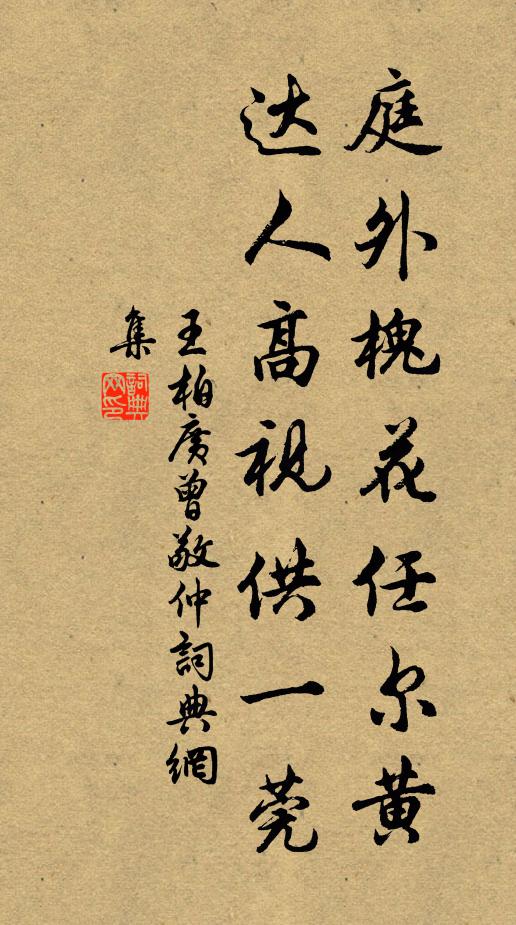 庭外槐花任尔黄
达人高视供一莞
王柏廣曾敬仲詞典網
集
詞典網印